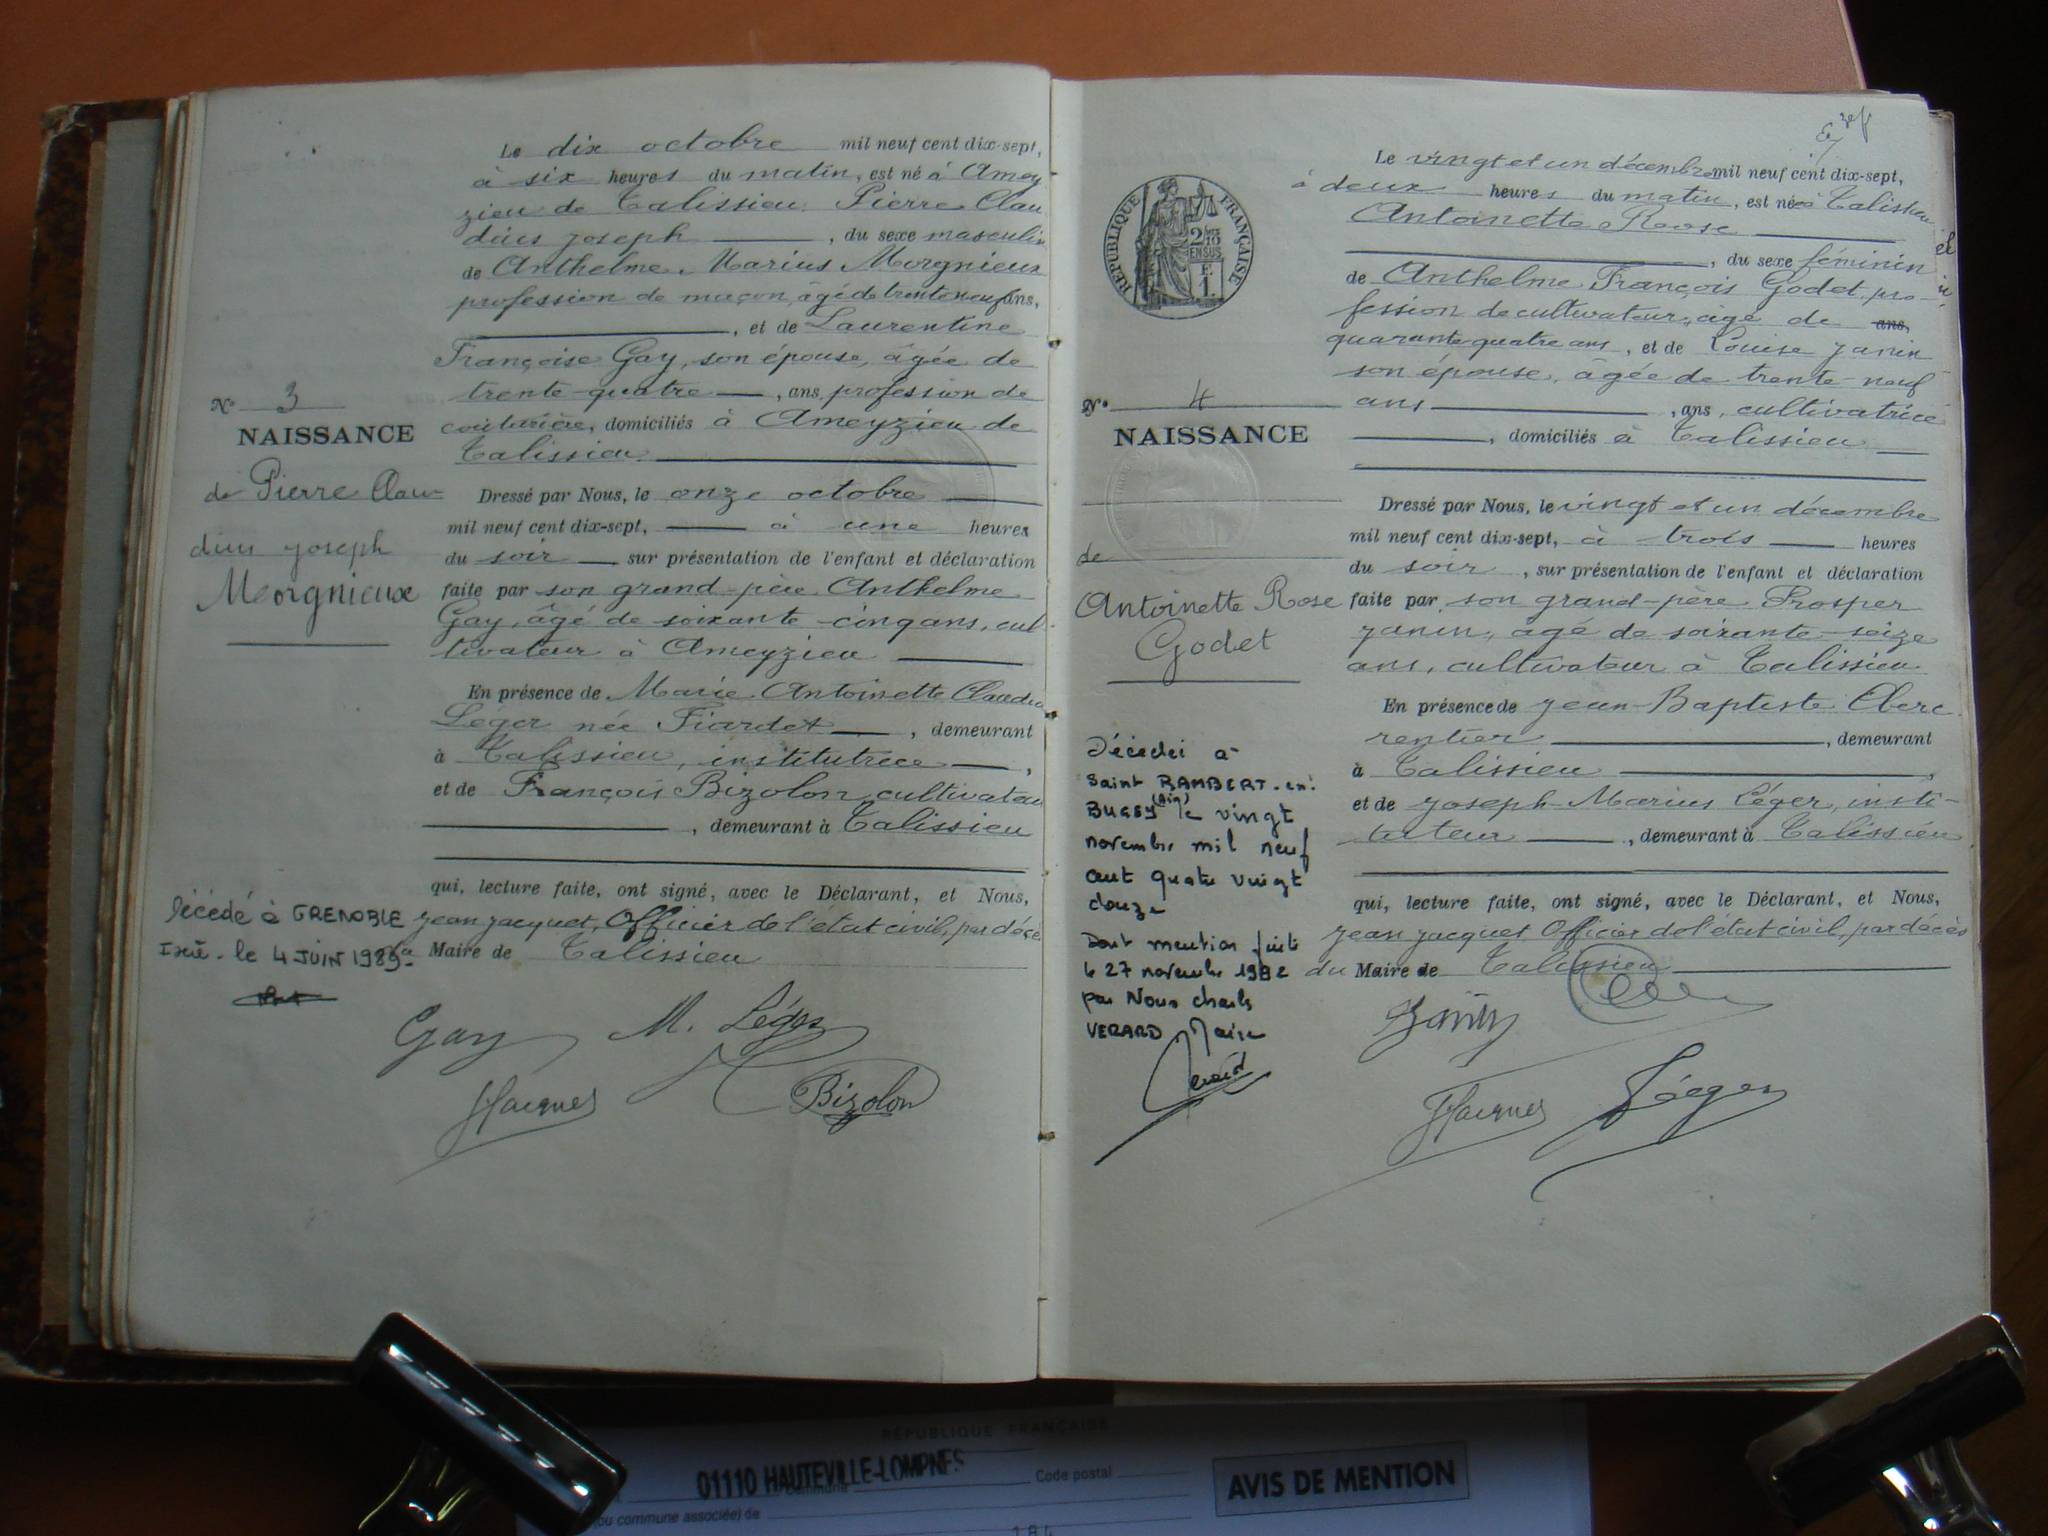 Le dix octobre mil neuf cent dix-sept,
à six heures du matin, est né à Amey
zieu de Talissieu Pierre Clau
dius Joseph , du sexe masculin
de Anthelme Marius Morgnieux
profession de maçon, âgé de trente neuf ans,
, et de Laurentine
Françoise Gay, son épouse, âgée de
trente-quatre , ans, profession de
couturière, domiciliés à Ameyzieu de
Talissieu
N° 3
NAISSANCE
de Pierre Clau
dius Joseph
Morgnieux
Dressé par Nous, le onze octobre
mil neuf cent dix-sept, à une heures
du soir sur présentation de l'enfant et déclaration
faite par son grand-père Anthelme
Gay, âgé de soixante-cinq ans, cul
tivateur à Ameyzieu
En présence de Marie Antoinette Claudia
Léger née Fiardet , demeurant
à Talissieu, institutrice ,
et de François Bizolon cultivateu
, demeurant à Talissieu
qui, lecture faite, ont signé, avec le Déclarant, et Nous,
Jean Jacquet, Officier de l'état civil, par décè
Maire de Talissieu
Décédé à GRENOBLE
Isère - le 4 JUIN
Gay M. Léger
Bizolon
RÉPUBLIQUE FRANÇAISE
2/10
EN SUS
F.
1.
Le vingt et un décembre mil neuf cent dix-sept,
à deux heures du matin, est née à Talissieu
Antoinette Rose
, du sexe féminin
de Anthelme François Godet, pro-
fession de cultivateur, âgé de ans,
quarante quatre ans, et de Louise Janin
son épouse, âgée de trente-neuf
ans , ans, cultivatrice
, domiciliés à Talissieu
N° 4
NAISSANCE
de
Antoinette Rose
Godet
Dressé par Nous, le vingt et un décembre
mil neuf cent dix-sept, à trois heures
du soir , sur présentation de l'enfant et déclaration
faite par son grand-père Prosper
Janin, âgé de soixante-seize
ans, cultivateur à Talissieu
En présence de Jean-Baptiste Clerc
rentier , demeurant
à Talissieu ,
et de Joseph Marius Léger, insti-
tuteur , demeurant à Talissieu
qui, lecture faite, ont signé, avec le Déclarant, et Nous,
Jean Jacquet Officier de l'état civil, par décès
du Maire de Talissieu
Décédée à
Saint RAMBERT-en-
BUGEY (Ain) le vingt
novembre mil neuf
cent quatre vingt
douze
Dont mention faite
le 27 novembre 1992
par Nous Charles
VERARD Maire
Janin
Léger
RÉPUBLIQUE FRANÇAISE
01110 HAUTEVILLE-LOMPNES
commune
Code postal
AVIS DE MENTION
(ou commune associée) de